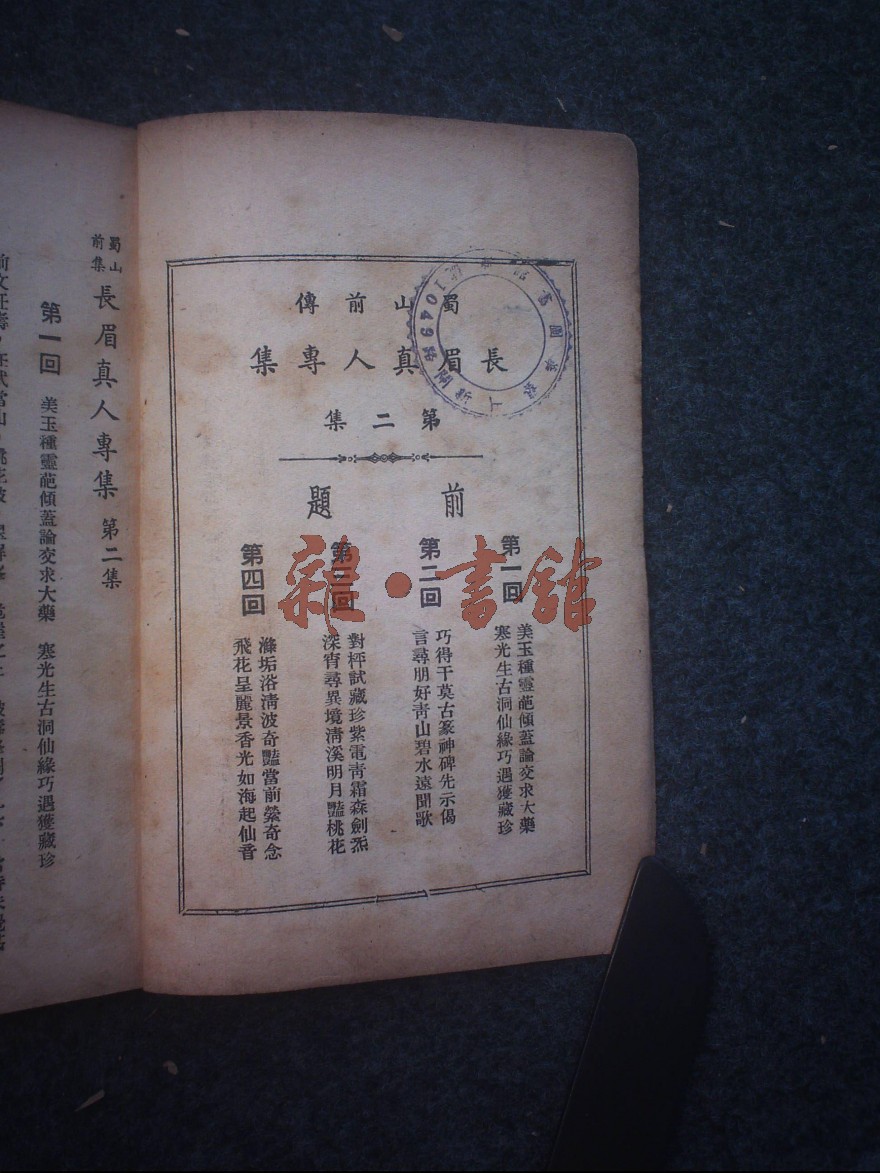 蜀山前傳
長眉真人專集
第二集
前題
第一回
美玉種靈葩傾蓋論交求大藥
寒光生古洞仙緣巧遇獲藏珍
第二回
巧得干莫古篆神碑先示偈
言尋朋好青山碧水遠聞歌
第三回
對枰試藏珍紫電青霜森劍炁
深宵尋異境清溪明月豔桃花
第四回
滌垢浴清波奇豔當前縈奇念
飛花呈麗景香光如海起仙音
雜·書館
1049
蜀山前集
長眉真人專集 第二集
第一回 美玉種靈葩傾蓋論交求大藥 寒光生古洞仙緣巧遇獲藏珍